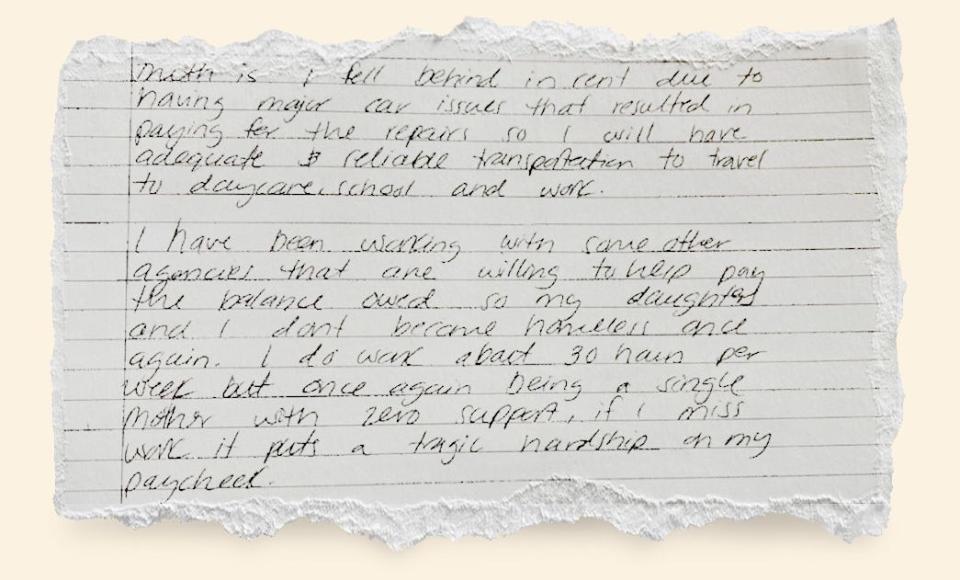 truth is I fell behind in rent due to
having major car issues that resulted in
paying for the repairs so I will have
adequate & reliable transportation to travel
to daycare, school and work.
I have been working with some other
agencies that are willing to help pay
the balance owed so my daughters
and I dont become homeless once
again. I do work about 30 hours per
week but once again being a single
mother with zero support, if I miss
work it puts a tragic hardship on my
paycheck.